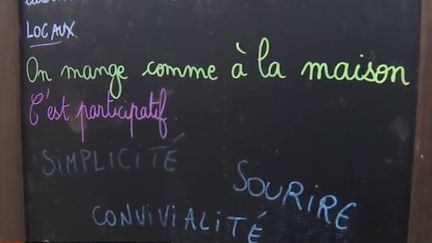 LOCAUX
On mange comme à la maison
C'est participatif
SIMPLICITÉ
SOURIRE
CONVIVIALITÉ